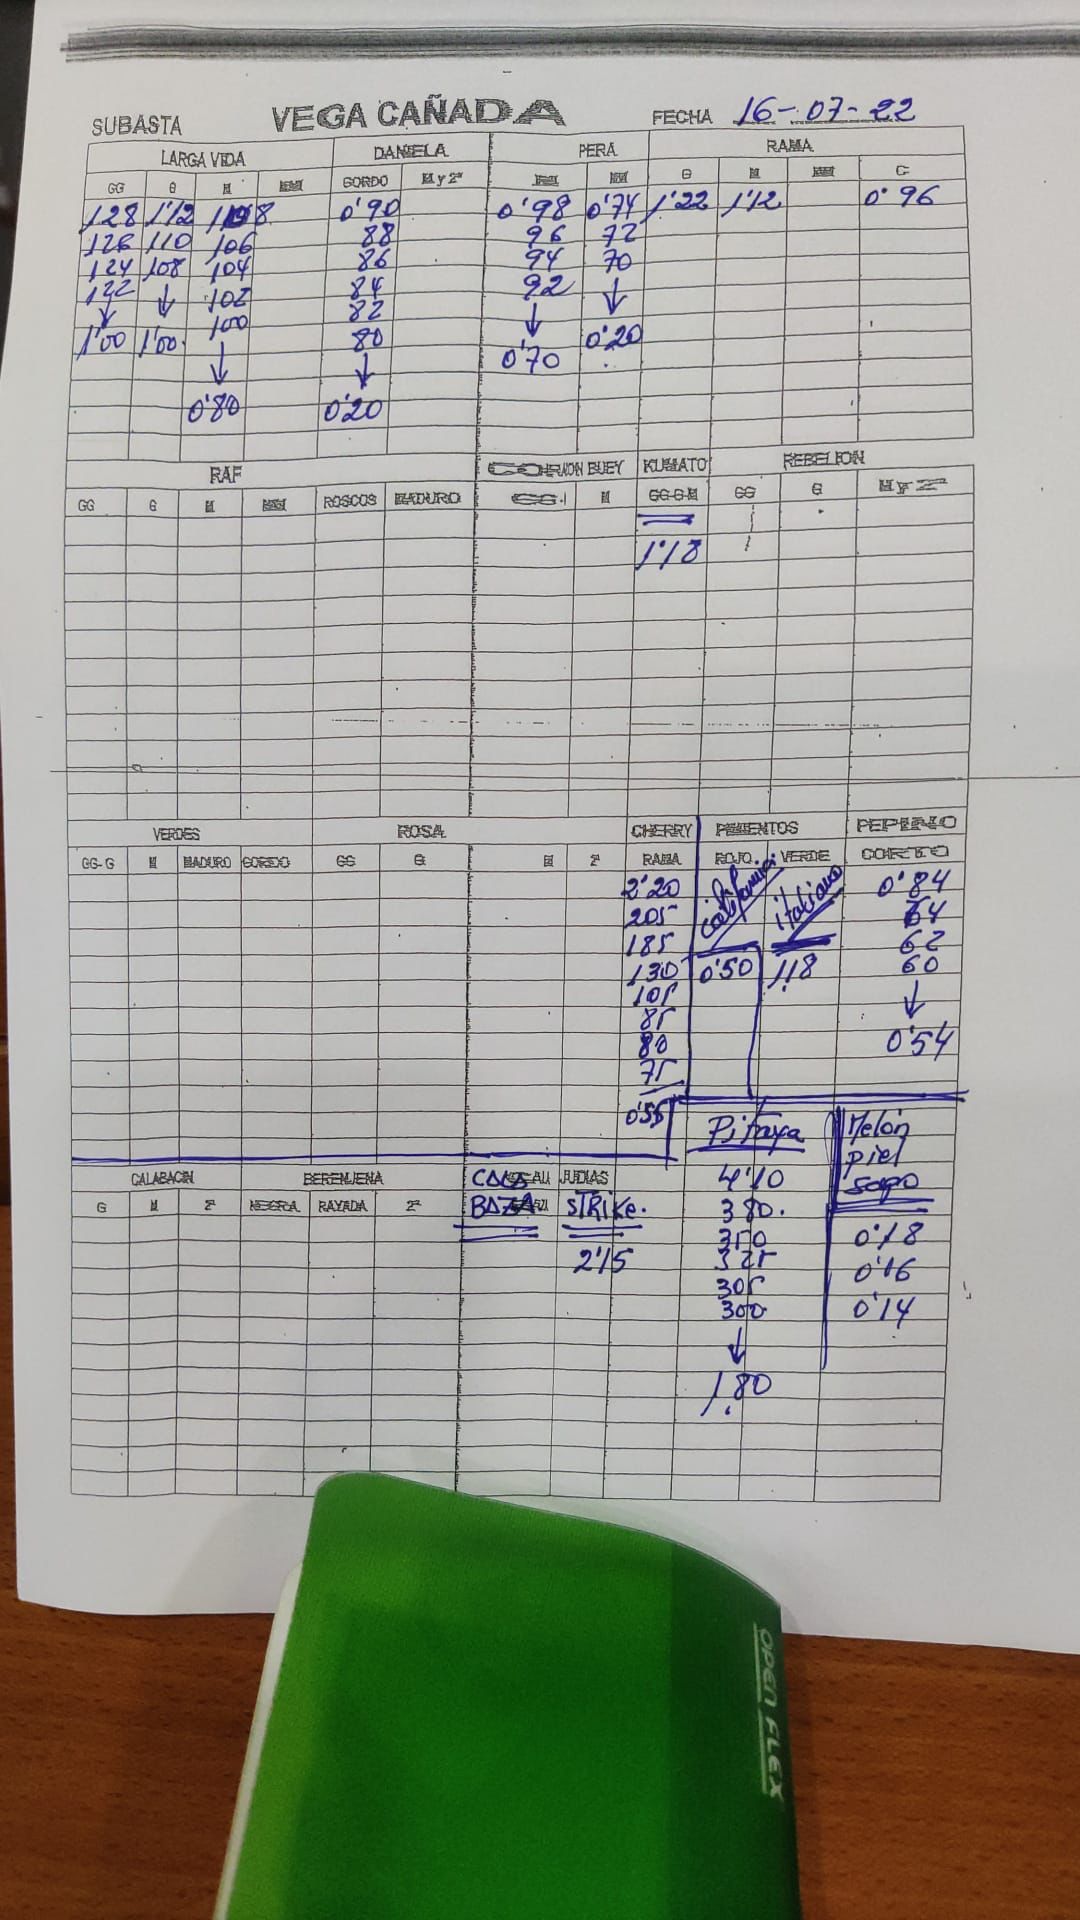 SUBASTA VEGA CAÑADA FECHA 16-07-22
LARGA VIDA DANIELA PERA RAMA
GG G M MM GORDO M y 2ª MM G M MM C
128 1'12 108 0'90 0'98 0'74 1'22 1'12 0'96
126 110 106 88 96 72
124 108 104 86 94 70
122 ↓ 102 84 92 ↓
↓ 100 82 ↓ 0'20
1'00 1'00 ↓ 80 0'70
0'80 ↓
0'20
RAF CORAZON BUEY KUMATO REBELION
GG G M MM ROSCOS MADURO GG-G M GG-G-M GG G M y 2ª
1'18
VERDES ROSA CHERRY PIMIENTOS PEPINO
GG-G M MADURO GORDO GG G M 2ª RAMA ROJO VERDE CORTO
california italiano
2'20 0'84
205 64
185 62
130 0'50 1'18 60
105 ↓
85 0'54
80
75
0'55
Pitaya Melón piel sapo
4'10 0'18
380 0'16
350 0'14
325
305
300
↓
1'80
CALABACIN BERENJENA CALABAZA JUDIAS
G M 2ª NEGRA RAYADA 2ª STRIKE
2'15
OPEN FLEX